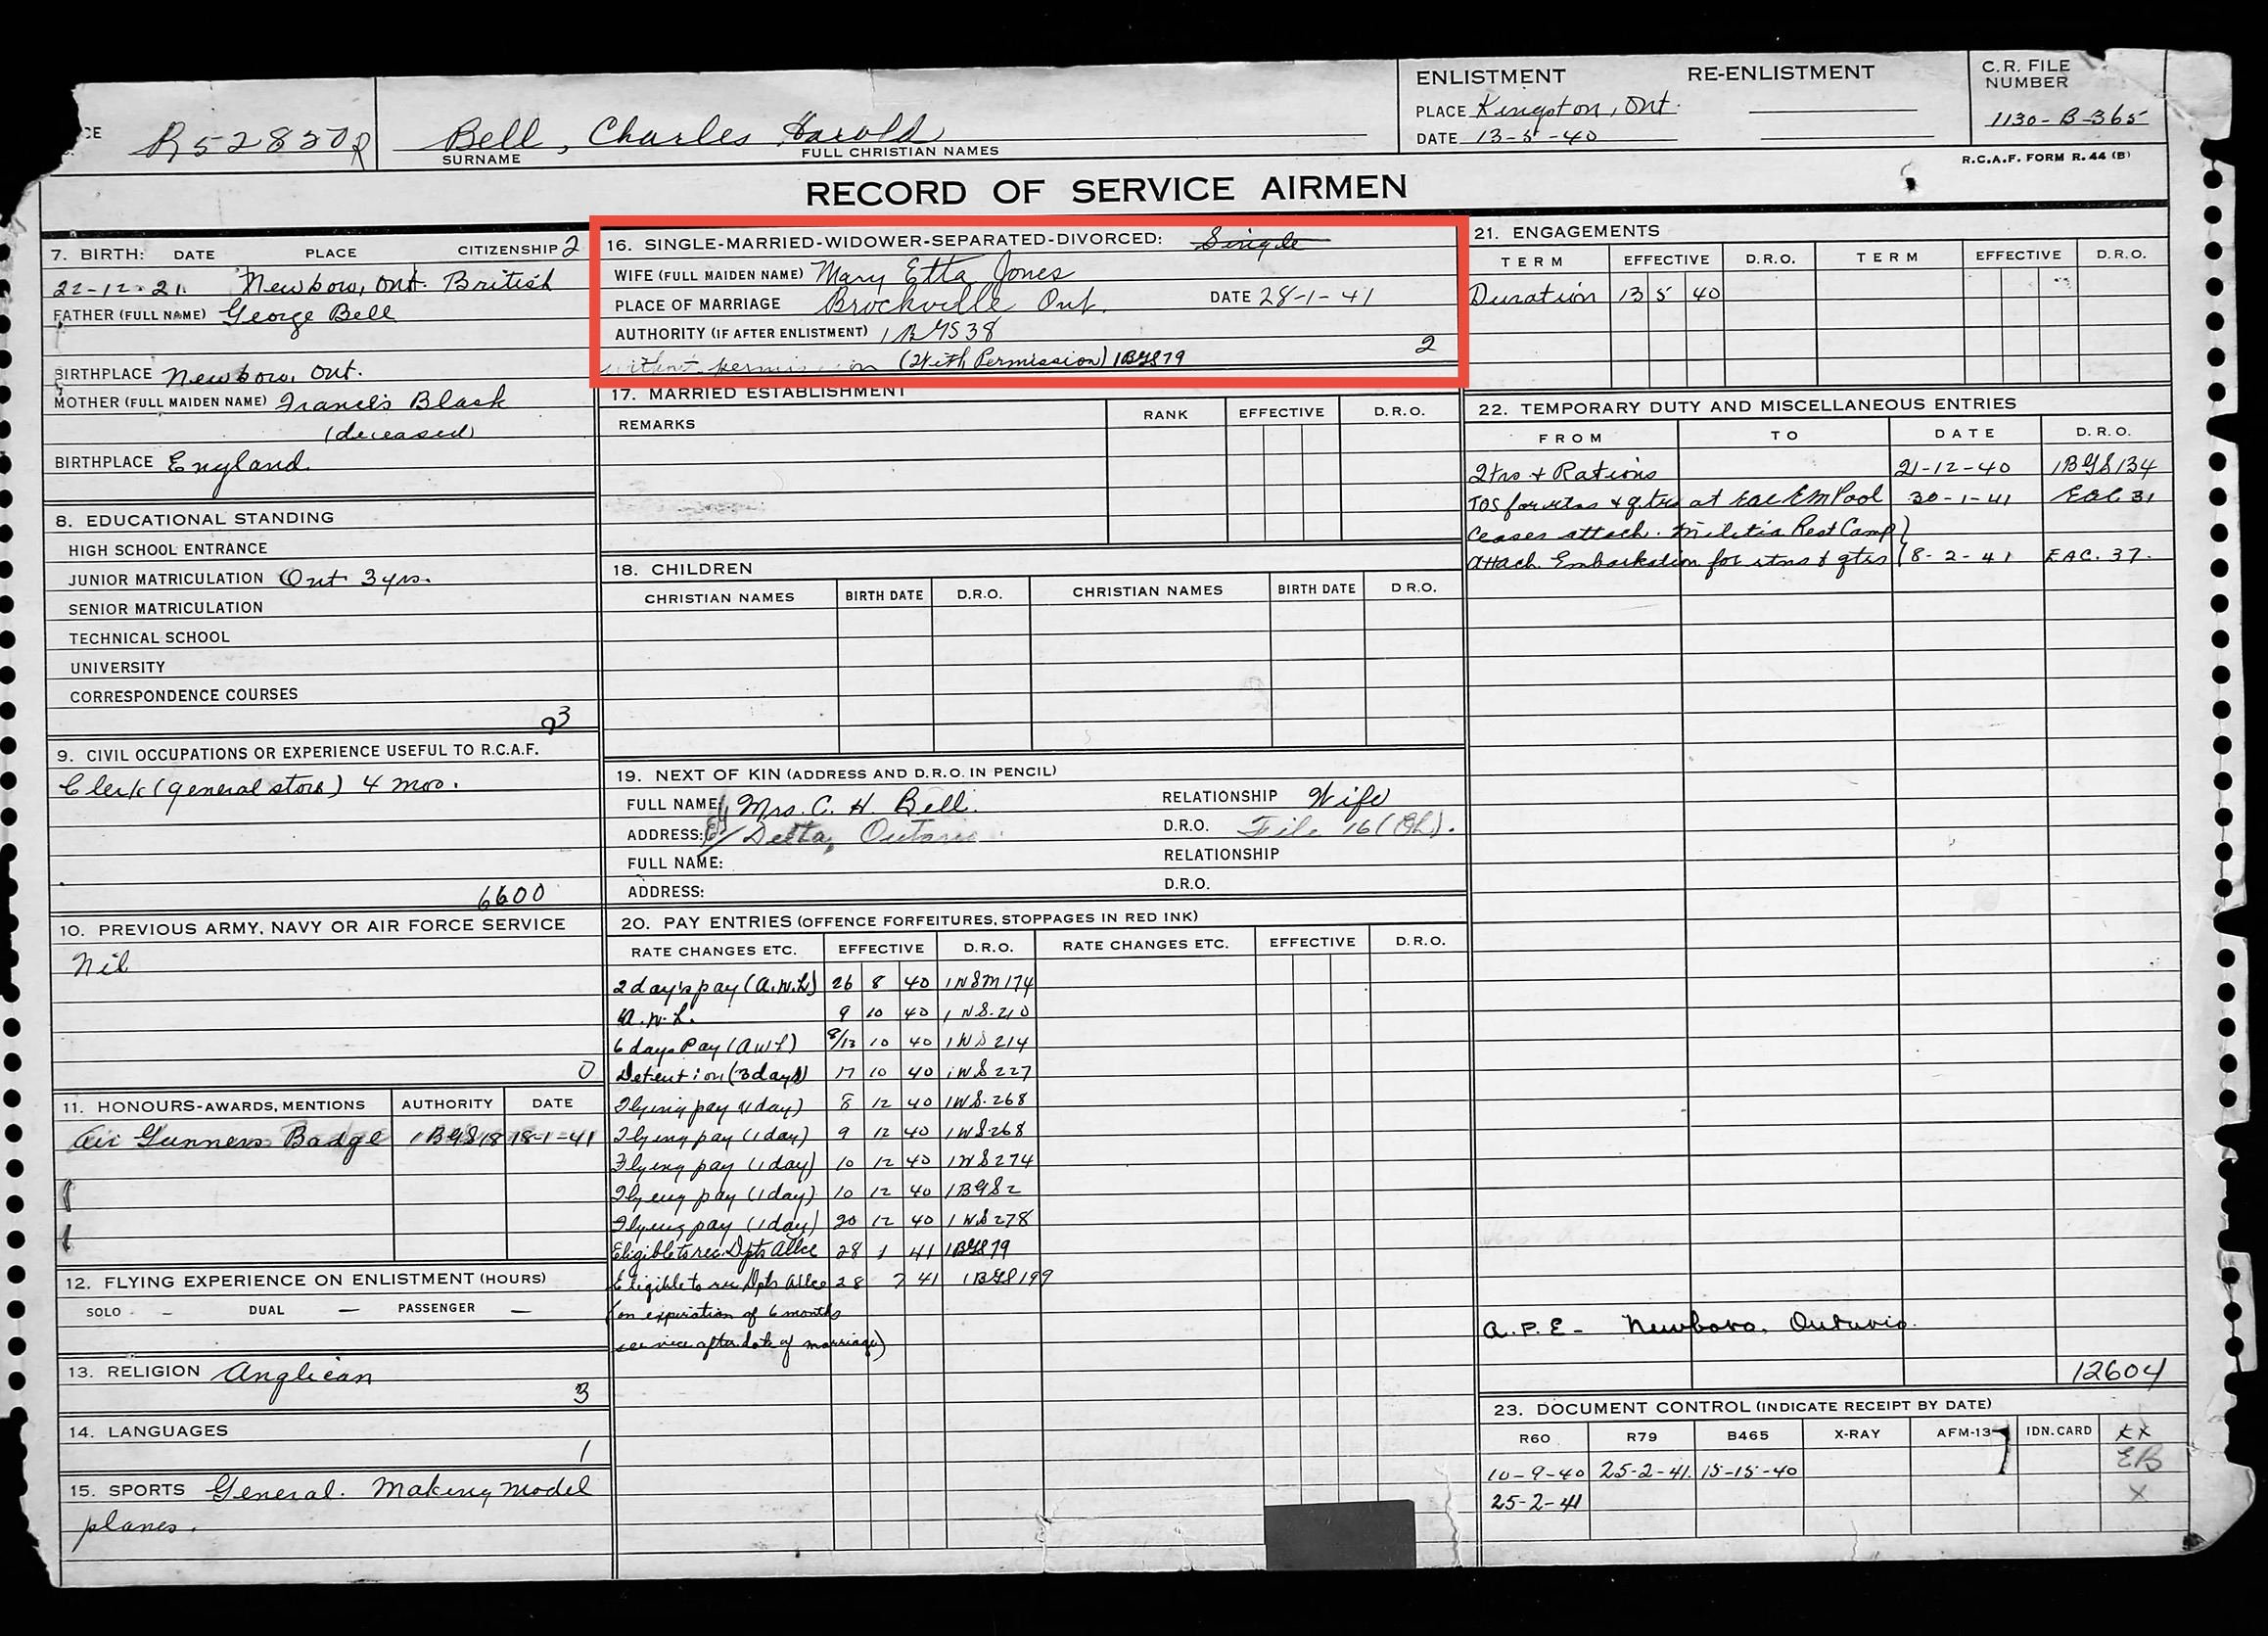 ENLISTMENT RE-ENLISTMENT
C.R. FILE NUMBER
PLACE Kingston, Ont.
DATE 13-5-40
1130-B-365
CE R52832
Bell, Charles Harold
SURNAME FULL CHRISTIAN NAMES
R.C.A.F. FORM R. 44 (B)
RECORD OF SERVICE AIRMEN
7. BIRTH: DATE PLACE CITIZENSHIP 2
22-12-21 Newboro, Ont. British
FATHER (FULL NAME) George Bell
BIRTHPLACE Newboro, Ont.
MOTHER (FULL MAIDEN NAME) Francis Black
(deceased)
BIRTHPLACE England
8. EDUCATIONAL STANDING
HIGH SCHOOL ENTRANCE
JUNIOR MATRICULATION Ont 3 yrs.
SENIOR MATRICULATION
TECHNICAL SCHOOL
UNIVERSITY
CORRESPONDENCE COURSES
3
9. CIVIL OCCUPATIONS OR EXPERIENCE USEFUL TO R.C.A.F.
Clerk (general store) 4 mos.
6600
10. PREVIOUS ARMY, NAVY OR AIR FORCE SERVICE
Nil
0
11. HONOURS-AWARDS, MENTIONS AUTHORITY DATE
Air Gunners Badge 1BGS18 18-1-41
12. FLYING EXPERIENCE ON ENLISTMENT (HOURS)
SOLO - - DUAL — PASSENGER —
13. RELIGION Anglican
3
14. LANGUAGES
1
15. SPORTS General. Making model
planes.
16. SINGLE-MARRIED-WIDOWER-SEPARATED-DIVORCED: Single
WIFE (FULL MAIDEN NAME) Mary Etta Jones
PLACE OF MARRIAGE Brockville Ont. DATE 28-1-41
AUTHORITY (IF AFTER ENLISTMENT) 1BGS38
2
without permission (With Permission) 1BGS79
17. MARRIED ESTABLISHMENT
REMARKS RANK EFFECTIVE D.R.O.
18. CHILDREN
CHRISTIAN NAMES BIRTH DATE D.R.O. CHRISTIAN NAMES BIRTH DATE D R.O.
19. NEXT OF KIN (ADDRESS AND D.R.O. IN PENCIL)
FULL NAME: Mrs. C. H. Bell. RELATIONSHIP Wife
ADDRESS: Delta, Ontario. D.R.O. File 16
FULL NAME: RELATIONSHIP
ADDRESS: D.R.O.
20. PAY ENTRIES (OFFENCE FORFEITURES, STOPPAGES IN RED INK)
RATE CHANGES ETC. EFFECTIVE D.R.O. RATE CHANGES ETC. EFFECTIVE D.R.O.
2 day's pay (A.W.L) 26 8 40 174
A.W.L. 9 10 40 210
6 days Pay (AWL) 8/13 10 40 1WS 214
Detention (3 days) 17 10 40 1WS 227
Flying pay (1 day) 8 12 40 1WS.268
Flying pay (1 day) 9 12 40 1WS268
Flying pay (1 day) 10 12 40 1WS274
Flying pay (1 day) 10 12 40 1BGS2
Flying pay (1 day) 20 12 40 1WS278
Eligible to rec. Dpts Allce 28 1 41 1BGS79
Eligible to rec Dpts Allce 28 7 41 1BGS199
(on expiration of 6 months
service after date of marriage)
21. ENGAGEMENTS
TERM EFFECTIVE D.R.O. TERM EFFECTIVE D.R.O.
Duration 13 5 40
22. TEMPORARY DUTY AND MISCELLANEOUS ENTRIES
FROM TO DATE D.R.O.
Qtrs & Rations 21-12-40 1BGS134
TOS for rtns & qtrs at EAC Em Pool 30-1-41 EAC 31
Ceases attach. Militia Rest Camp)
Attach. Embarkation for rtns & qtrs (8-2-41 EAC. 37.
A.P.E- Newboro, Ontario.
12604
23. DOCUMENT CONTROL (INDICATE RECEIPT BY DATE)
R60 R79 B465 X-RAY AFM-13 IDN.CARD XX
10-9-40 25-2-41. 15-15-40 EB
25-2-41 X